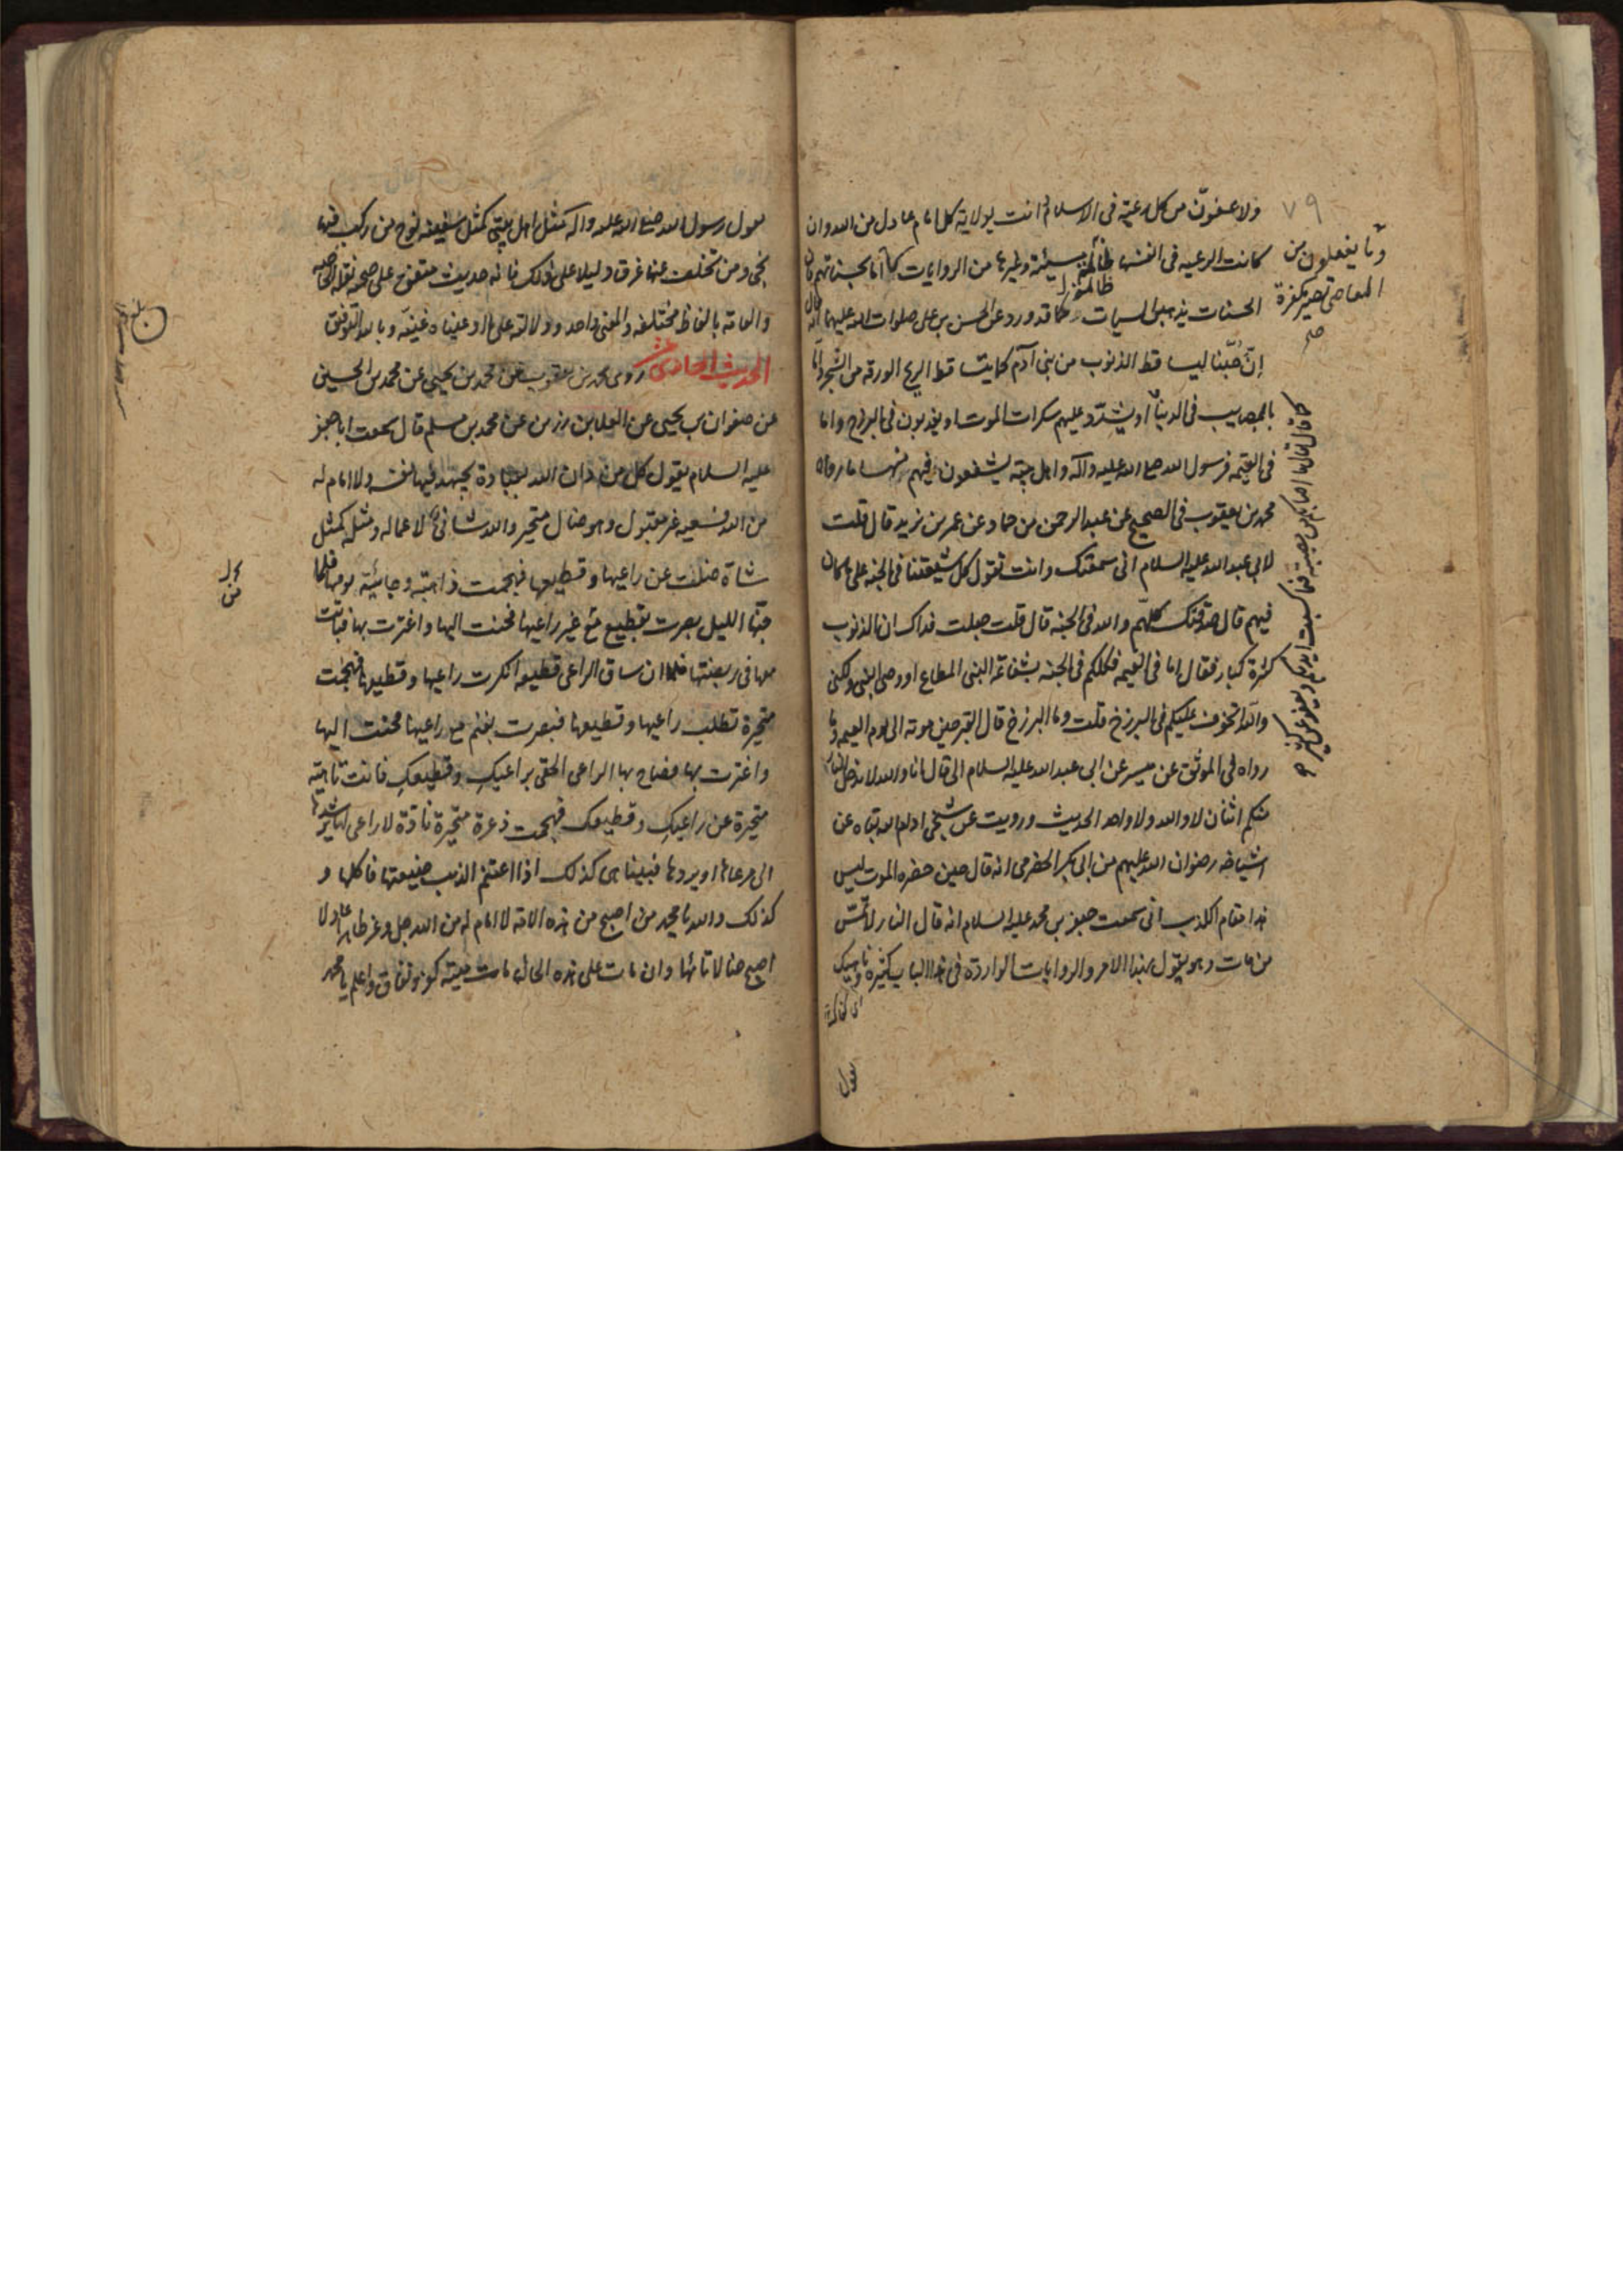 ٧٩
ولاعفونّ عن كل رعية فى الاسلام دانت بولاية كل امام عادل من الله وان
كانت الرعيه فى انفسها ظالمة سيئة وغيرها من الروايات اما بحسناتهم فان
الحسنات يذهبن السيات كما قد ورد عن الحسن بن على صلوات الله عليهما انه قال
إنّ حُبّنا ليساقط الذنوب من بنى آدم كما يساقط الريح الورقه من الشجر وامّا
بالمصايب فى الدنيا او يشدّد عليهم سكرات الموت او يعذبون فى البرزخ واما
فى القيمه فرسول الله صلى الله عليه وآله واهل بيته يشفعون فيهم منها ما رواه
محمد بن يعقوب فى الصحيح عن عبد الرحمن بن حماد عن عمر بن يزيد قال قلت
لابى عبد الله عليه السلام انى سمعتك وانت تقول كل شيعتنا فى الجنه على ما كان
فيهم قال صدقتك كلهم والله فى الجنه قال قلت جعلت فداك ان الذنوب
كثيرة كبار فقال اما فى القيمه فكلكم فى الجنه بشفاعة النبى المطاع او وصى النبى ولكنى
والله اتخوف عليكم فى البرزخ قلت وما البرزخ قال القبر حين موته الى يوم القيمه وما
رواه فى الموثق عن ميسر عن ابى عبد الله عليه السلام الى قال اما والله لا يدخل النار
منكم اثنان لا والله ولا واحد الحديث ورويت عن شيخى ادام الله بقاه عن
اشياخه رضوان الله عليهم عن ابى بكر الحضرمى انه قال حين حضره الموت ليس
هذا مقام الكذب انى سمعت جعفر بن محمد عليه السلام انه قال النار لا تمسّ
من مات وهو يقول بهذا الامر والروايات الواردة فى هذا الباب كثيرة
وما يفعلون من
المعاصى تصير مكفرة
صح
كما قال تعالى ما اصابكم من مصيبة فبما كسبت ايديكم ويعفو عن كثير
يقول رسول الله صلى الله عليه واله مثل اهل بيتى كمثل سفينة نوح من ركب فيها
نجى ومن تخلف عنها غرق دليلا على ذلك فانه حديث متفق على صحته نقله الخاصه
والعامة بالفاظ مختلفه والمعنى واحد ودلالته على ما ادعيناه غنيّه وبالله التوفيق
الحديث الحادى عشر روى محمد بن يعقوب عن محمد بن يحيى عن محمد بن الحسين
عن صفوان بن يحيى عن العلا بن رزين عن محمد بن مسلم قال سمعت ابا جعفر
عليه السلام يقول كل من دان الله بعبادة يجتهد فيها نفسه ولا امام له
من الله فسعيه غير مقبول وهو ضال متحير والله شانئ لاعماله ومثله كمثل
شاة ضلت عن راعيها وقطيعها فهجمت ذاهبة وجائية يومها فلما
جنّها الليل بصرت بقطيع مع غير راعيها فحنت اليها واغترت بها فباتت
معها فى ربضتها فلما ان ساق الراعى قطيعه انكرت راعيها وقطيعها فهجمت
متحيرة تطلب راعيها وقطيعها فبصرت بغنم مع راعيها فحنت اليها
واغترت بها فصاح بها الراعى الحقى براعيك وقطيعك فانت تائهة
متحيرة عن راعيك وقطيعك فهجمت ذعرة متحيرة نادّة لا راعى لها يرشدها
الى مرعاها او يردها فبينا هى كذلك اذا اغتنم الذئب ضيعتها فاكلها و
كذلك والله يا محمد من اصبح من هذه الامة لا امام له من الله جل وعز طاهرا عادلا
اصبح ضالا تائها وان مات على هذه الحال مات ميتة كفر ونفاق واعلم يا محمد